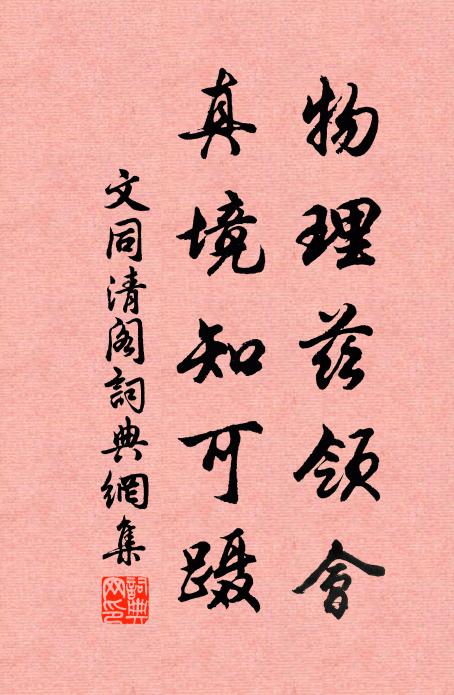 物理茲領會
真境知可蹑
文同清阁詞典網集
詞典网印